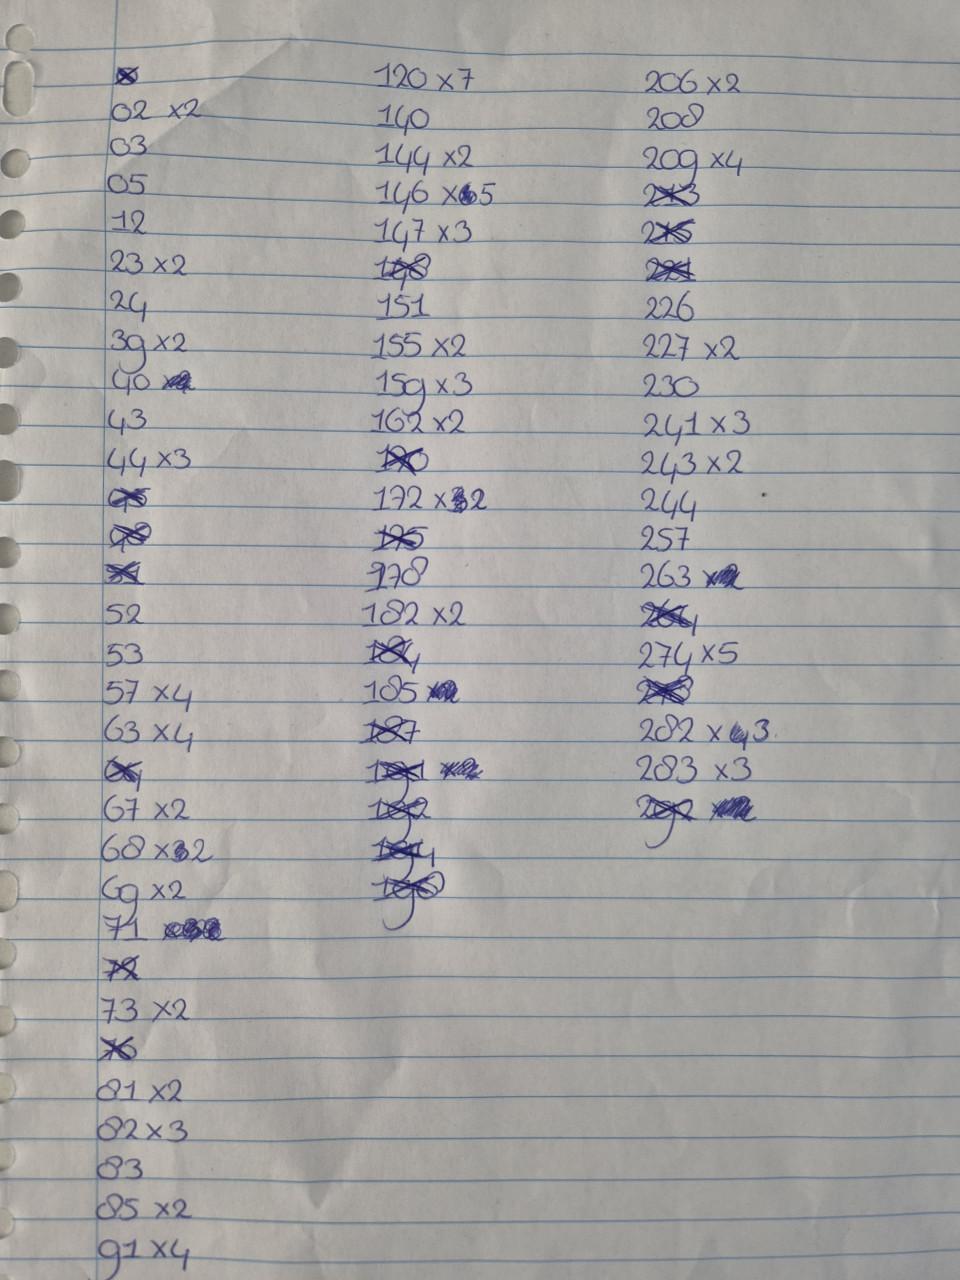 02 x2
03
05
12
23 x2
24
39 x2
40
43
44 x3
52
53
57 x4
63 x4
67 x2
68 x2
69 x2
71
73 x2
81 x2
82 x3
83
85 x2
91 x4
120 x7
140
144 x2
146 x5
147 x3
148
151
155 x2
159 x3
162 x2
172 x2
178
182 x2
184
185
187
206 x2
208
209 x4
213
221
226
227 x2
230
241 x3
243 x2
244
257
263
264
274 x5
282 x3
283 x3